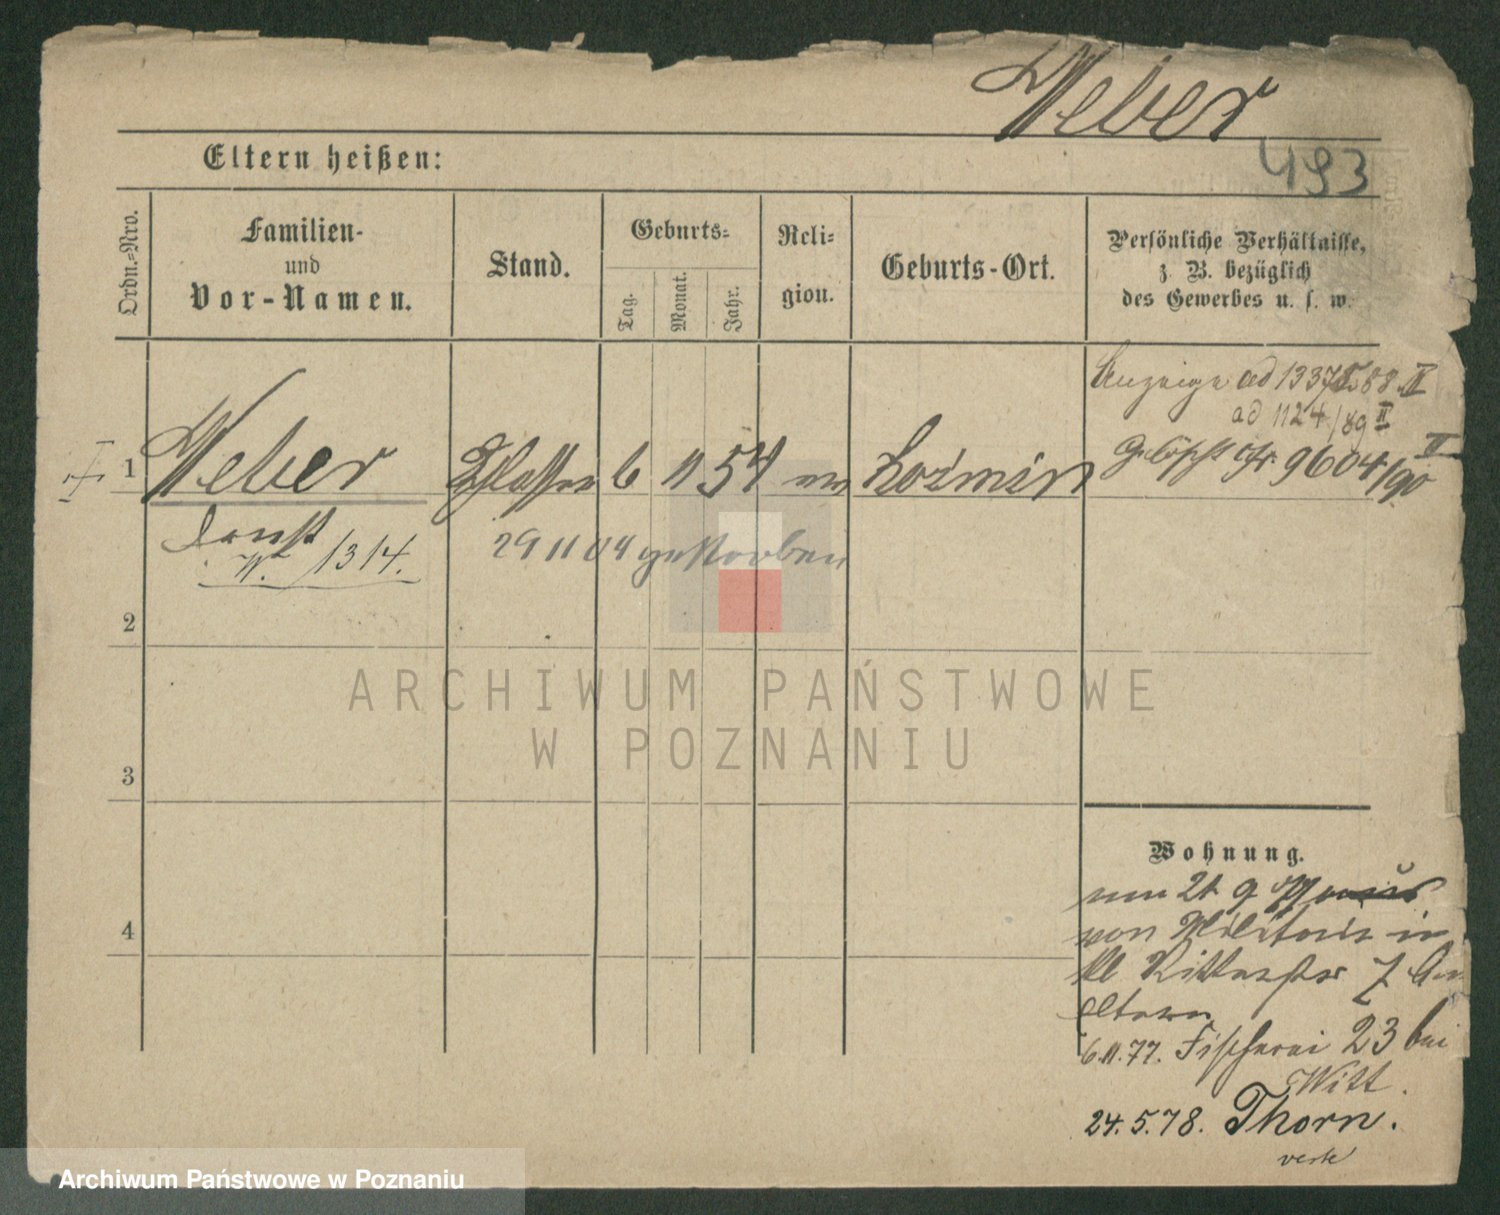 Weber
493
Eltern heißen:
Ordn.-Nro.
Familien-
und
Vor-Namen.
Stand.
Geburts-
Tag.
Monat.
Jahr.
Reli-
gion.
Geburts-Ort.
Persönliche Verhältnisse,
z. B. bezüglich
des Gewerbes u. s. w.
Anzeige ad 88 II
ad 1124/89 II
1 Weber Schlosser 6 11 54 Kozmin 9604/90 II
Ernst 29 11 04 gestorben
W. 1314.
2
ARCHIWUM PAŃSTWOWE
W POZNANIU
3
Wohnung.
21 9
von Militair in
Kl. Ritterstr 7
Eltern
6.11.77. Fischerei 23 bei
Witt.
24.5.78. Thorn.
4
Archiwum Państwowe w Poznaniu